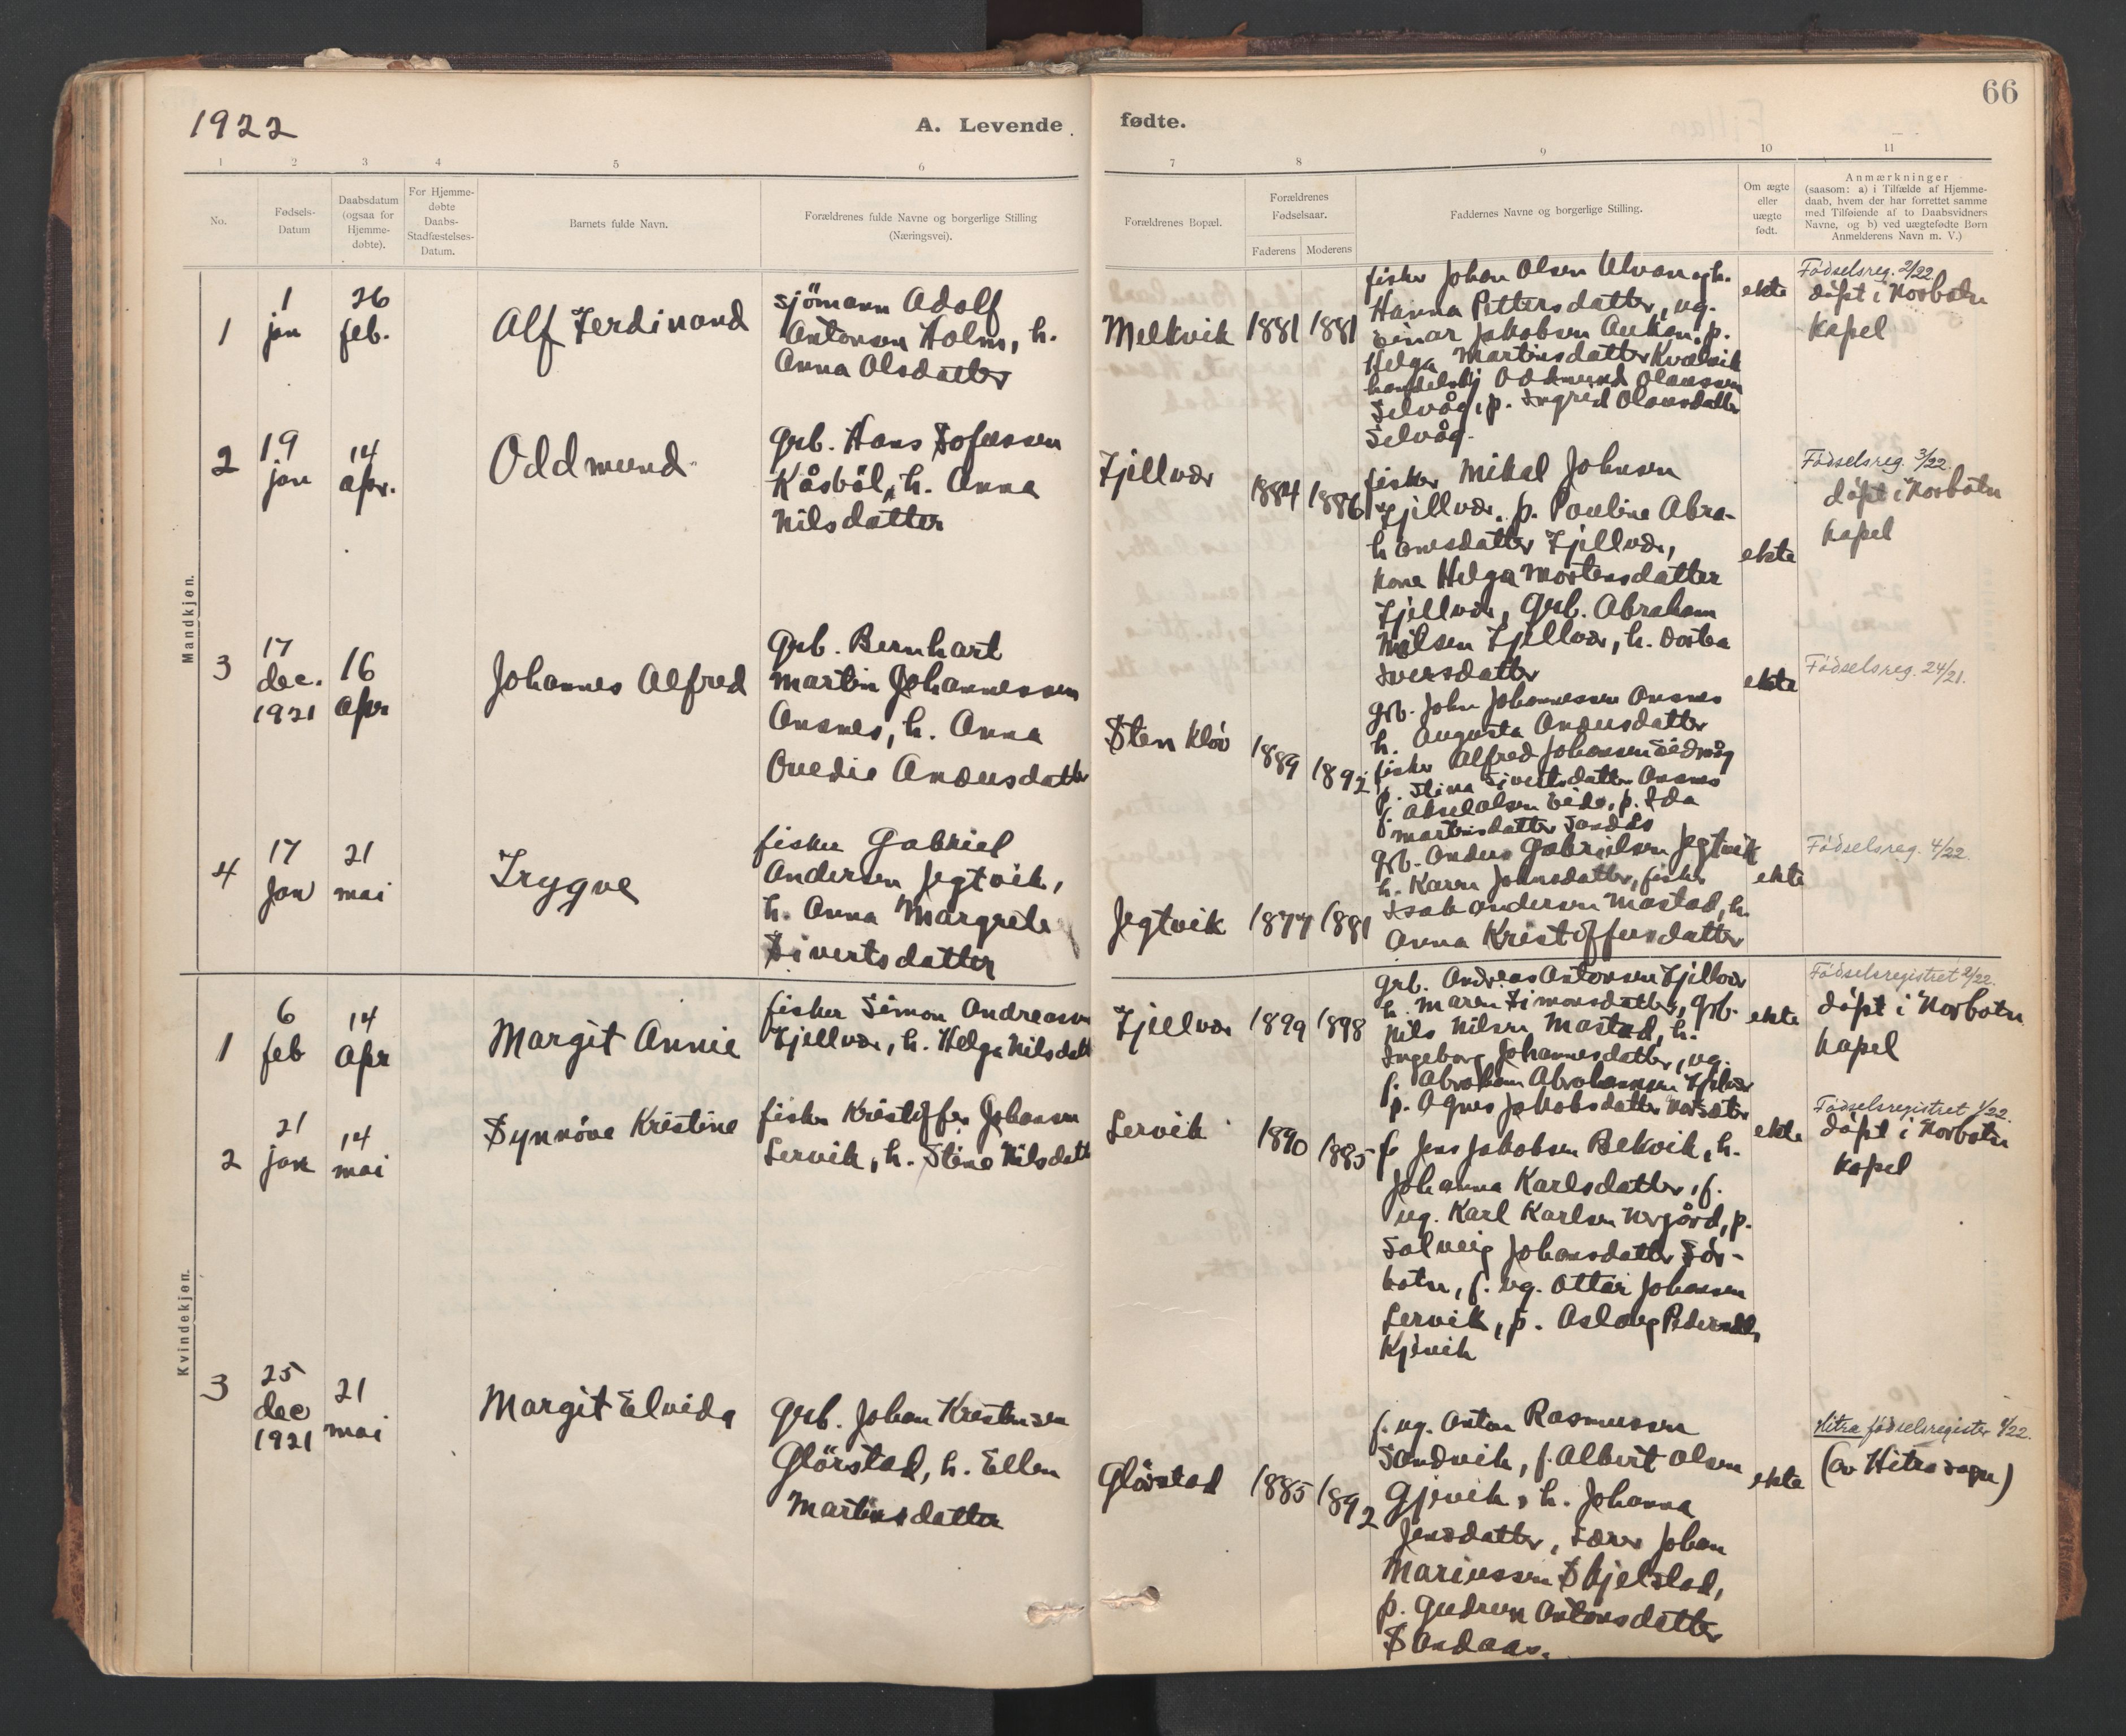 66
1922
A. Levende
fødte.
1 2 3 4 5 6
7 8 9 10 11
No.
Fødsels-
Datum
Daabsdatum
(ogsaa for
Hjemme-
døbte).
For Hjemme-
døbte
Daabs-
Stadfæstelses-
Datum.
Barnets fulde Navn.
Forældrenes fulde Navne og borgerlige Stilling
(Næringsvei).
Forældrenes Bopæl.
Forældrenes
Fødselsaar.
Faderens
Moderens
Faddernes Navne og borgerlige Stilling.
Om ægte
eller
uægte
født.
Anmærkninger
(saasom: a) i Tilfælde af Hjemme-
daab, hvem der har forrettet samme
med Tilføiende af to Daabsvidners
Navne, og b) ved uægtefødte Børn
Anmelderens Navn m. V.)
Mandkjøn.
1
1
jan
26
feb.
Alf Ferdinand
sjömann Adolf
Antonsen Holm, h.
Anna Olsdatter
Melkvik
1881
1881
fisker Johan Olsen Ulvan og h.
Hanna Pettersdatter, ug.
Einar Jakobsen Aukan, p.
Helga Martinsdatter Kvalvik
handelsbj Oddmund Olaussen
Selvåg, p. Ingrid Olausdatter
Selvåg.
ekte
Födselsreg. 2/22.
döpt i Norbotn
kapel
2
19
jan
14
apr.
Oddmund
Grb. Hans Sofussen
Kåsböl, h. Anna
Nilsdatter
Fjellvær
1884
1886
fisker Mikal Johnsen
Fjellvær, p. Pauline Abra-
hamsdatter Fjellvær,
kone Helga Mortensdatter
Fjellvær, Grb. Abraham
Nilsen Fjellvær, h. Dortea
Iversdatter
ekte
Födselsreg. 3/22.
döpt i Norbotn
kapel
3
17
dec.
1921
16
apr
Johannes Alfred
Grb. Bernhart
Martin Johannessen
Ansnes, h. Anna
Ovedie Andersdatter
Stenkløv
1889
1892
grb. John Johannessen Ansnes
h. Augusta Andersdatter
fisker Alfred Johansen
p. Stina Sivertsdatter Ansnes
f. Aksel Olsen Eide, p. Ida
Martinsdatter
ekte
Födselsreg. 24/21.
4
17
jan
21
mai
Trygve
fisker Gabriel
Andersen Jegtvik,
h. Anna Margrete
Sivertsdatter
Jegtvik
1877
1881
grb. Anders Gabrielsen Jegtvik
h. Karen Johnsdatter, fisker
Isak Andersen Mastad, h.
Anna Kristoffersdatter
ekte
Födselsreg. 4/22.
Kvindekjøn.
1
6
feb
14
apr
Margit Annie
fisker Simon Andreasen
Fjellvær, h. Helga Nilsdatt
Fjellvær
1899
1898
grb. Andreas Antonsen Fjellvær
h. Maren Simonsdatter, grb.
Nils Nilsen Mastad, h.
Ingeborg Johannesdatter, ug.
f. Abraham Abrahamsen Fjelvær
p. Agnes Jakobsdatter
ekte
Födselsregistret 2/22.
döpt i Norbotn
kapel
2
21
jan
14
mai
Synnöve Kristine
fisker Kristoffer Johansen
Lervik, h. Stine Nilsdatt
Lervik
1890
1885
f. Jens Jakobsen Bekvik, h.
Johanna Karlsdatter, f.
ug. Karl Karlsen Nergård, p.
Solveig Johansdatter Sör-
botn, f. ug. Ottar Johansen
Lervik, p. Aslaug
Kjevik
ekte
Födselsregistret 1/22.
döpt i Norbotn
kapel
3
25
dec
1921
21
mai
Margit Elvida
Grb. Johan Kristensen
Glörstad, h. Ellen
Martinsdatter
Glörstad
1885
1892
f. ug. Anton Rasmussen
Sandvik, f. Albert Olsen
Gjevik, h. Johanna
Jensdatter, Johan
Mariussen Skjelstad,
p. Gudrun Antonsdatter
Sandaas.
ekte
Hitra födselsregister
(av Hitra sogn)